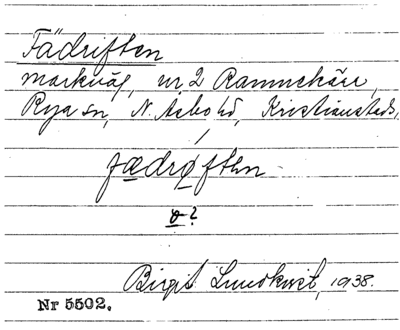 Fädriften
markväg, nr 2 Rammekärr,
Rya sn, N. Åsbo hd, Kristianstads,
fædrøften
ø?
Birgit Lundkvist, 1938.
Nr 5502.